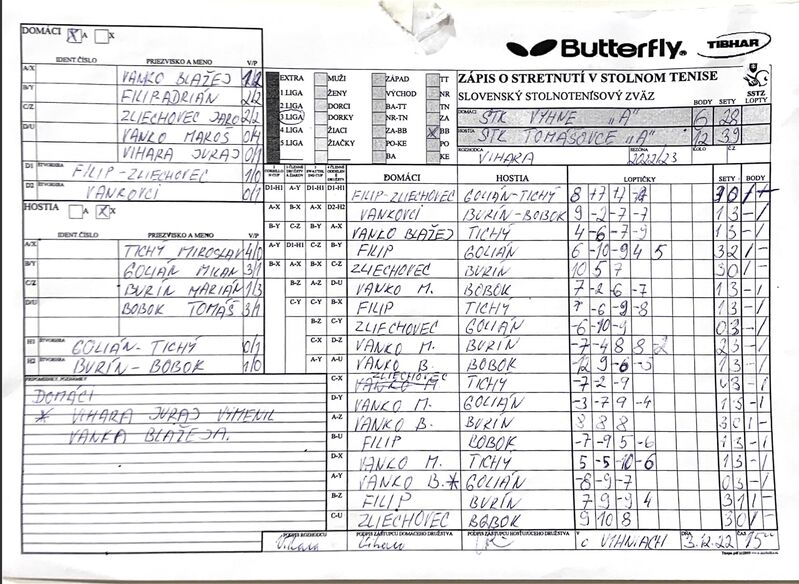 Butterfly®
TIBHAR
DOMÁCI X A X
IDENT ČÍSLO PRIEZVISKO A MENO V/P
A/X VANKO BLAŽEJ 1/2
B/Y FILIP ADRIÁN 2/2
C/Z ZLIECHOVEC JARO 2/2
D/U VANKO MAROŠ 0/4
VIHARA JURAJ 0/1
D1 ŠTVORHRA FILIP-ZLIECHOVEC 1/0
D2 ŠTVORHRA VANKOVCI 0/1
HOSTIA A X X
IDENT ČÍSLO PRIEZVISKO A MENO V/P
A/X TICHÝ MIROSLAV 4/0
B/Y GOLIÁN MILAN 3/1
C/Z BURÍN MARIÁN 1/3
D/U BOBOK TOMÁŠ 3/1
H1 ŠTVORHRA GOLIÁN-TICHÝ 0/1
H2 ŠTVORHRA BURÍN-BOBOK 1/0
PRIPOMIENKY, POZNÁMKY
DOMÁCI
* VIHARA JURAJ VYMENIL
VANKA BLAŽEJA.
EXTRA MUŽI ZÁPAD TT
1 LIGA ŽENY VÝCHOD NR
2 LIGA DORCI BA-TT TN
3 LIGA DORKY NR-TN ZA
4 LIGA ŽIACI ZA-BB BB
5 LIGA ŽIAČKY PO-KE PO
BA KE
ZÁPIS O STRETNUTÍ V STOLNOM TENISE
SLOVENSKÝ STOLNOTENISOVÝ ZVÄZ
SSTZ
BODY SETY LOPTY
DOMÁCI STK VYHNE "A" 6 28
HOSTIA STK TOMÁŠOVCE "A" 12 39
ROZHODCA VIHARA SEZÓNA 2022/23 KOLO Č
DOMÁCI HOSTIA LOPTIČKY SETY BODY
D1-H1 A-Y B-X D1-H1 FILIP-ZLIECHOVEC GOLIÁN-TICHÝ
A-X B-X A-X D2-H2 VANKOVCI BURÍN-BOBOK 9 -2 -7 -7 1 3 -/
B-Y C-Z A-X VANKO BLAŽEJ TICHÝ 4 -6 -7 -9 1 3 -/
A-Y D1-H1 C-Z B-Y FILIP GOLIÁN 6 -10 -9 4 5 3 2 /-
B-X A-X B-X C-Z ZLIECHOVEC BURÍN 10 5 7 3 0 /-
B-Z A-Z D-U VANKO M. BOBOK 7 -2 -6 -7 1 3 -/
C-Y C-Y B-X FILIP TICHÝ -6 -9 -8 1 3 -/
B-Z C-Y ZLIECHOVEC GOLIÁN 0 3 -/
C-X D-Z VANKO M. BURÍN -7 -4 8 8 -2 2 3 -/
A-Y A-U VANKO B. BOBOK 12 9 -6 -5 1 3 -/
C-X ZLIECHOVEC TICHÝ -7 -2 -9 0 3 -/
D-Y VANKO M. GOLIÁN -3 -7 9 -4 1 3 -/
A-Z VANKO B. BURÍN 8 8 8 3 0 /-
B-U FILIP BOBOK -7 -9 5 -6 1 3 -/
D-X VANKO M. TICHÝ 5 -5 -10 -6 1 3 -/
A-Y VANKO B.* GOLIÁN -8 -9 -7 0 3 -/
B-Z FILIP BURÍN 7 9 -9 4 3 1 /-
C-U ZLIECHOVEC BOBOK 9 10 8 3 0 /-
PODPIS ROZHODCU PODPIS ZÁSTUPCU DOMÁCEHO DRUŽSTVA PODPIS ZÁSTUPCU HOSŤUJÚCEHO DRUŽSTVA V VIHNIACH DŇA 3.12.22 ČAS 15